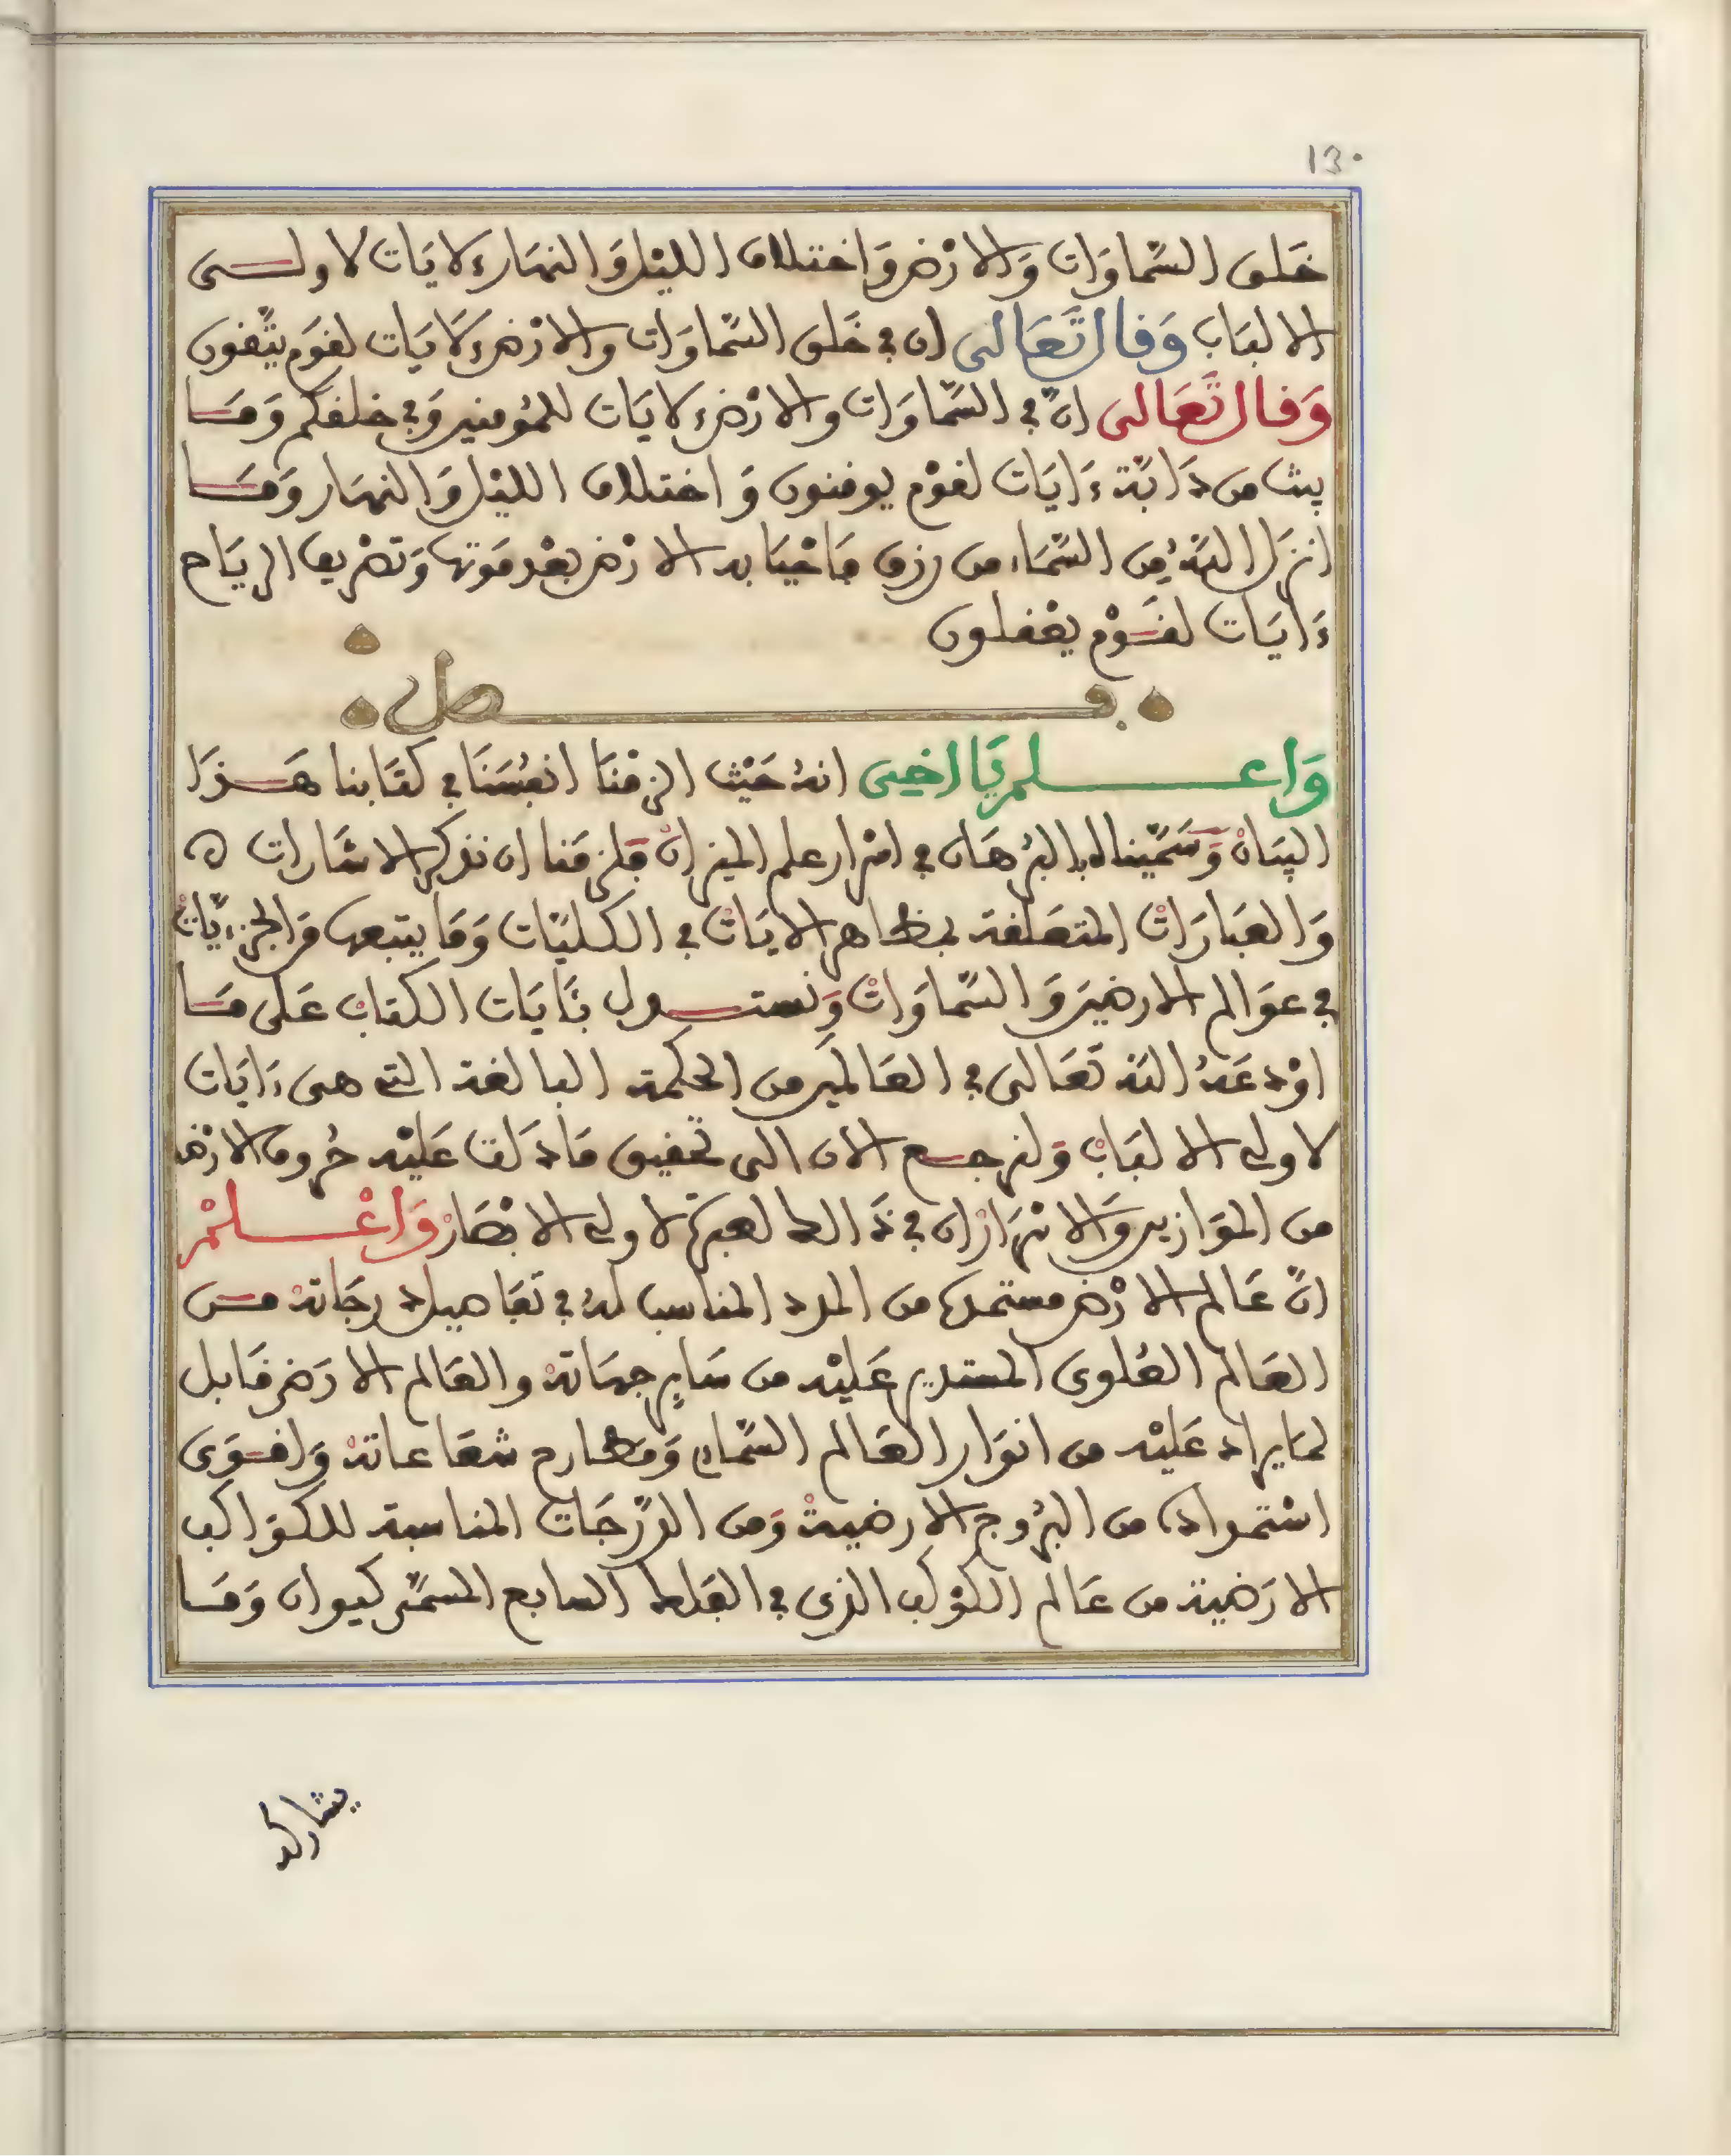 130
خَلق السَّمَاوَات وَالارْض وَاختلاف الليْل وَالنهَار ءلايَات لاولى
الالبَاب وَقال تَعَالى ان في خَلق السَّمَاوَات والارْض ءلَايَات لقوَم يتّقون
وَقال تَعَالى انّ في السَّمَاوَات والارْض ءلايَات للمُومنين وَفي خلقكم وَمَا
يبث من دَابَّة ءَايَات لقوْم يوقنون وَاختلاف الليْل وَالنهَار وَمَا
انزَل اللهُ من السَّمَاء من رزق فَاحْيَا به الارْض بعْد مَوتها وَتصْريف الريَاح
ءَايَات لقَوْم يعْقلون
فصل
وَاعلم يَا اخِى انهُ حَيْث الزمْنَا انفسَنَا في كتَابنا هَذَا
البيَانْ وَسَمّيناه بالبرْهَان في اسْرار علم الميزانْ فلزمَنا ان نذكر الاشارات ه
وَالعبَارَاتْ المتعَلقة بمظاهر الايَاتْ في الكليّات وَمَا يتبعها مَن الجزءيّاتْ
في عوَالم الارضينَ وَالسَّمَاوَاتْ وَنستدل بئَايَات الكتابْ عَلى مَا
اوْدعَهُ الله تعَالى في العَالمين من الحكمة البالغة التي هى ءَايَات
لاولي الالبَابْ وَلنرجع الان الى تحقيق مَا دَلت عَليْه حُروف الارْض
من الموَازين وَالاسْرَارْ ان في ذَالك لعبرَة لاولي الابْصَارْ وَاعْلمْ
انّ عَالم الارْض مستمدة من المدد المناسب لهُ في تفَاصيل درجَاتهْ من
العَالم العُلوى المستدير عَليْه من سَاير جهَاتهْ والعَالم الارَضى قَابل
لمَا يراد عَليْه من انوَار العَالم السَّمَاءى وَمطارح شعَاعاتهْ وَاقوَى
اسْتمداده من البرُوج الارضيةْ وَمن الدّرجَات المناسبة للكوَاكب
الارَضية من عَالم الكوْكب الذى في الفلك السابع المسمّى كيوان وَمَا
يشاركه